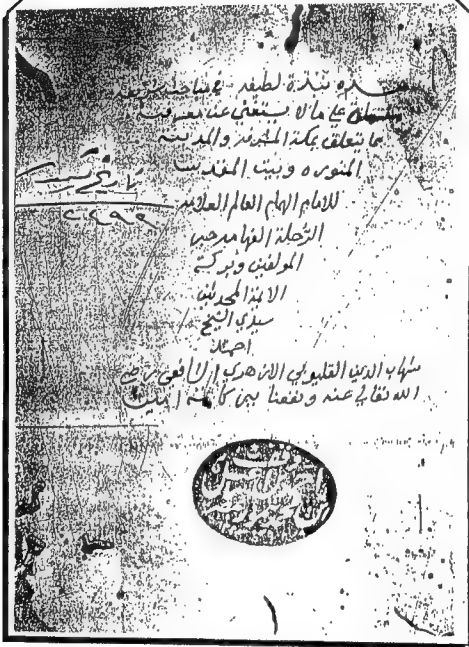 هذه نبذة لطيفة في مباحث شريفة
على مالا يستغنى عن معرفته
مما يتعلق بمكة المشرفة والمدينة
المنوره وبيت المقدس
للامام الهام العالم العلامه
الرحلة الفهامه خير
المولفين وبركة
الايمة المحدثين
سيدي الشيخ
احمد
شهاب الدين القليوبي الازهري الشافعي رضي
الله تعالى عنه ونفعنا ببركاته امين
تاريخ
٢٤٩٩